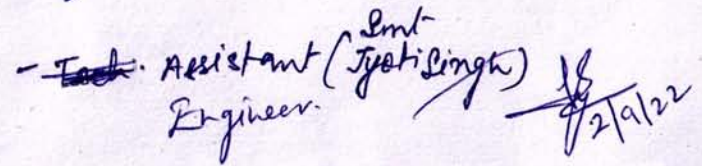 Smt
- Assistant (Jyoti Singh)
Engineer.
2/9/22